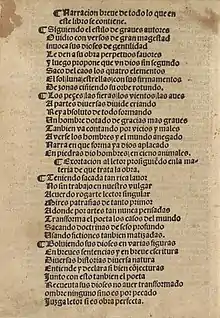 Narracion breue de todo lo que en
este libro se contiene.
Siguiendo el estilo de graues autores
Ouidio con versos de gran magestad
inuoca sus dioses de gentilidad
Le den a su obra perpetuos fauores
y luego propone que vn dios sin segundo
Saco del caos los quatro elementos
El sol luna y estrellas con sus firmamentos
De zonas ciñendo su orbe rotundo.
Los peçes las fieras los vientos las aues
A partes diuersas diuide criando
Rey absoluto de todo formando
Un hombre dotado de gracias mas graues
Tambien va contando por vicios y males
A verse los hombres y el mundo anegado
Narra en que forma ya dios aplacado
En piedras dio hombres en cieno animales.
Exortacion al letor prosiguiendo en la ma
teria de que trata la obra.
Teniendo sacada tan rica lauor
No sin trabajo en nuestro vulgar
Acuerdo rogarte letor singular
Mires patrañas de tanto primor
Adonde por artes tan nunca pensadas
Transforma el poeta los casos del mundo
Sacando doctrinas de seso profundo
Usando fictiones tambien matizadas.
Boluiendo sus dioses en varias figuras
En breues sentencias y en breue escritura
Diuersas historias abueltas natura
Entiende y declara si bien cõjecturas
Junto con esto tambien el poeta
Recuenta sus dioses no auer transformado
ombre ninguno sino es por pecado
Juzga letor si es obra perfecta.